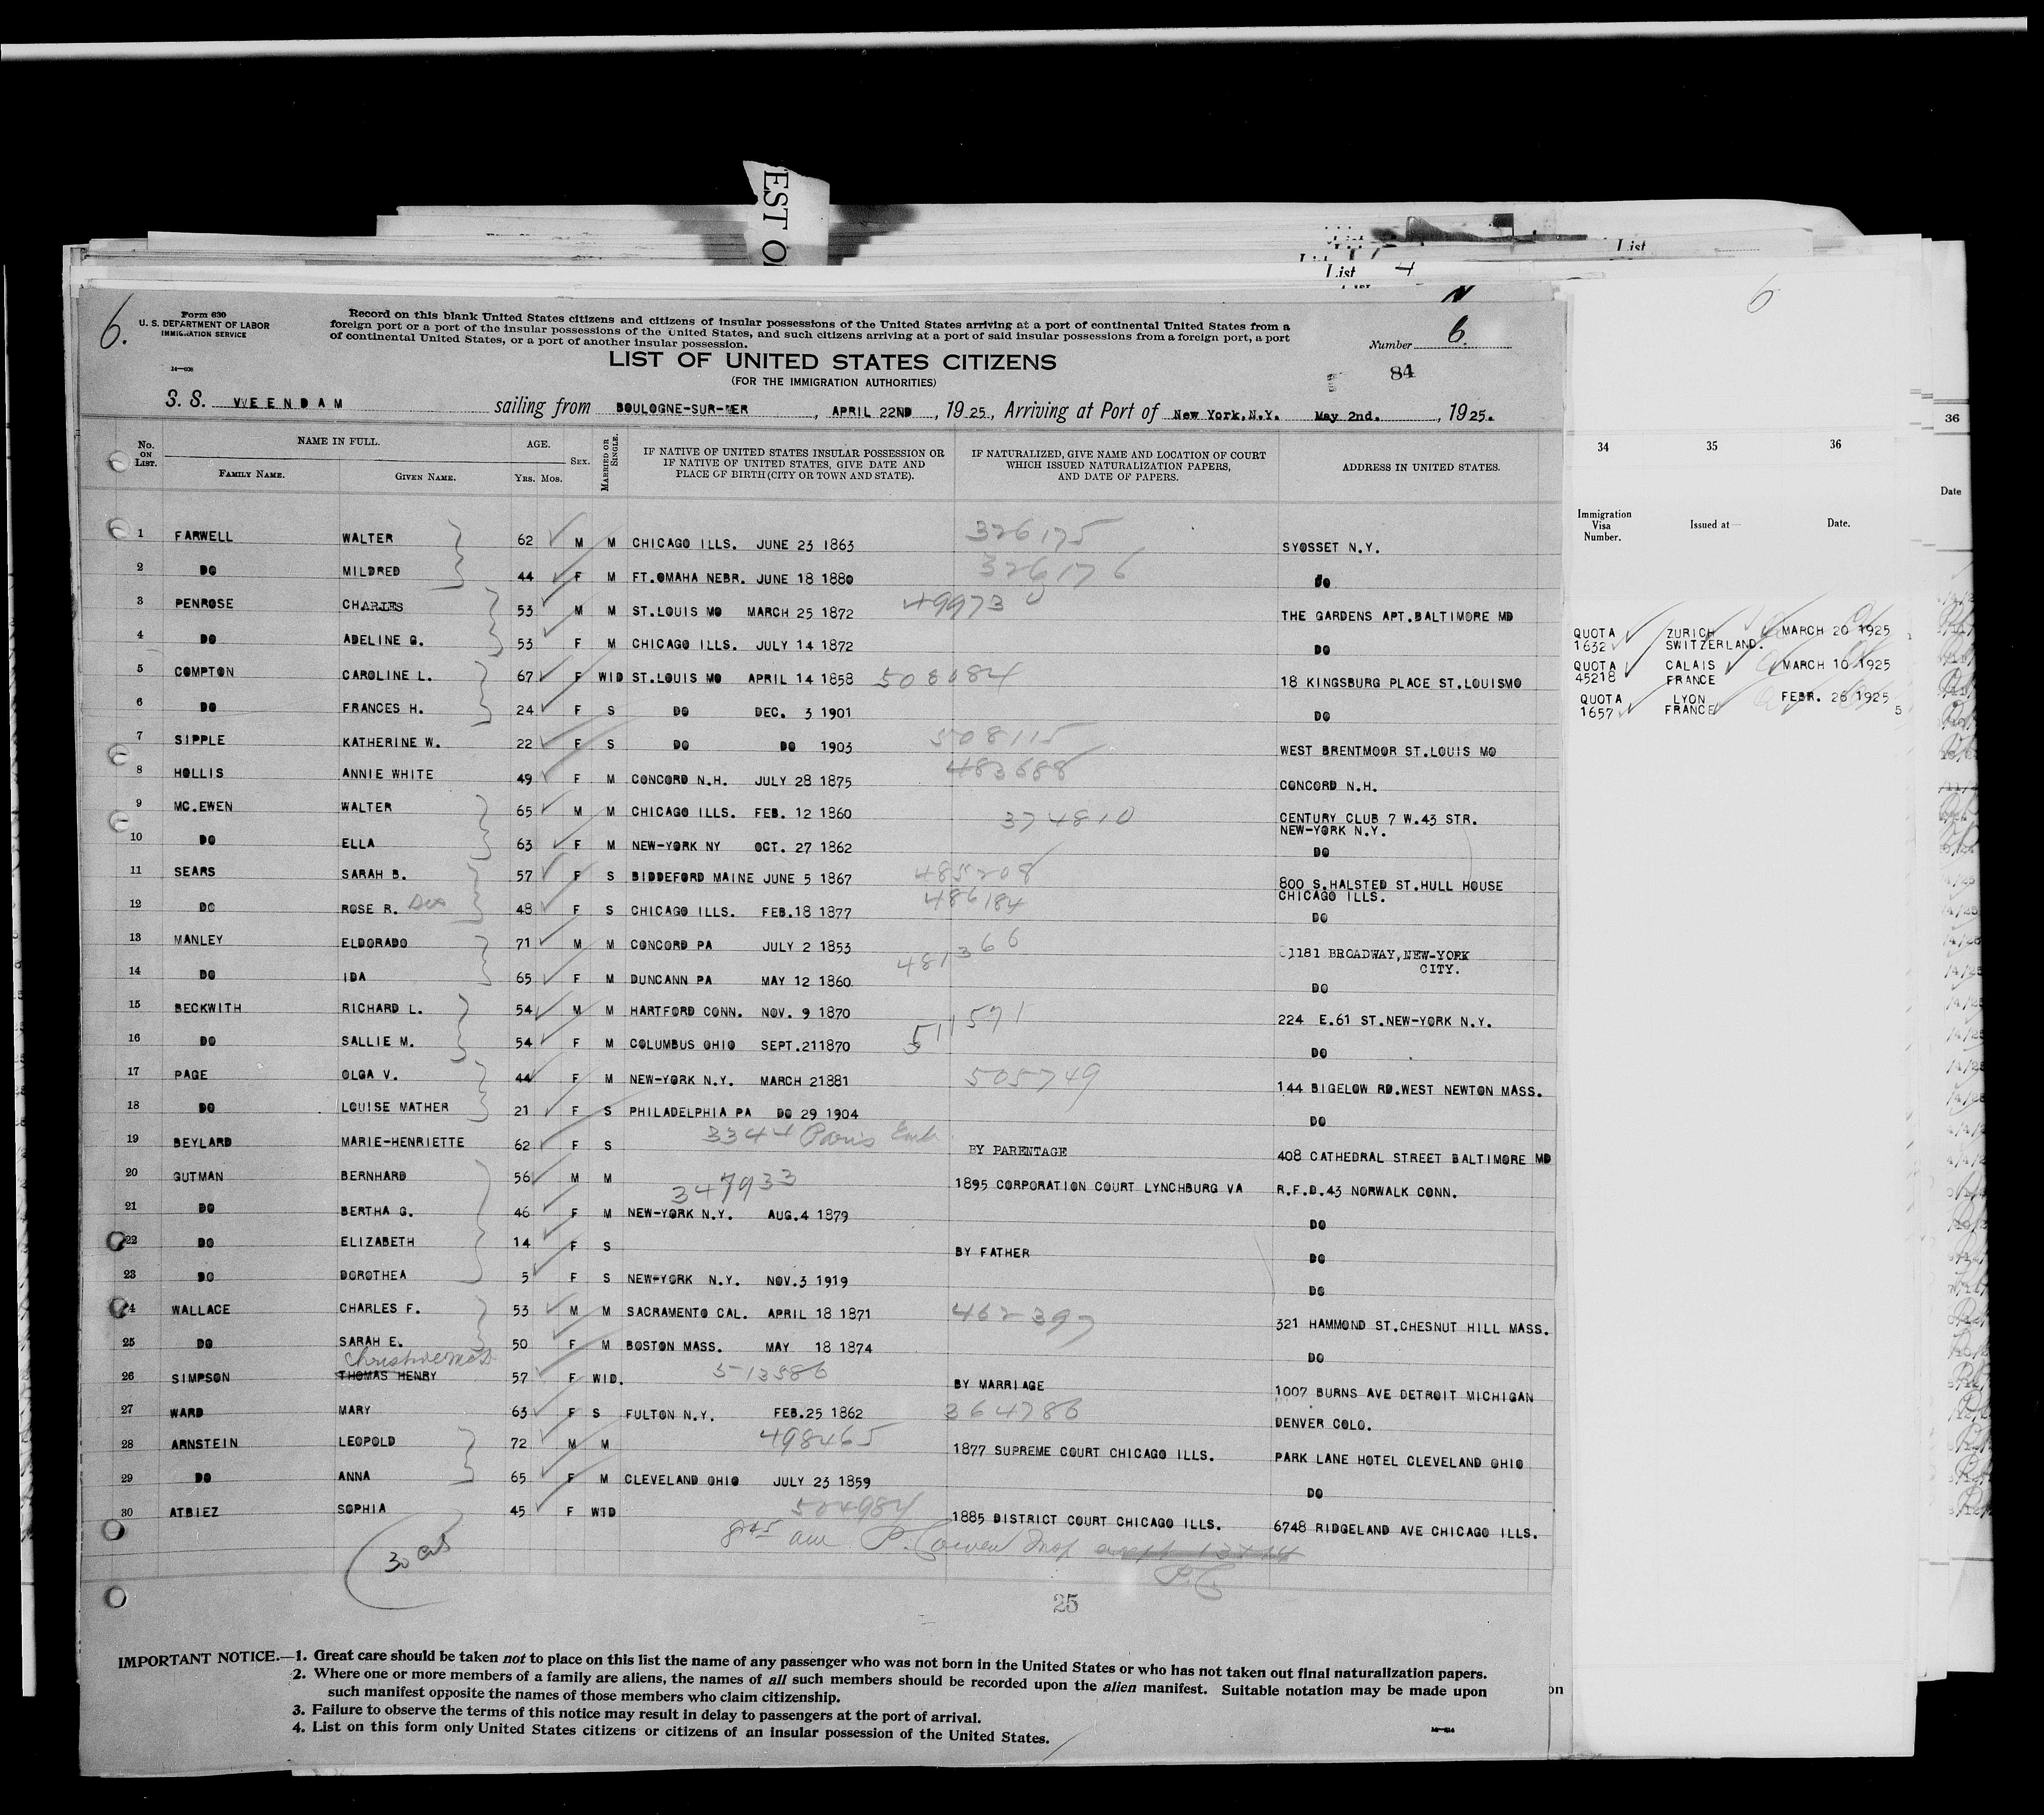 EST OF
List
List 4
6
N
6.
Form 630
U. S. DEPARTMENT OF LABOR
IMMIGRATION SERVICE
14—608
Record on this blank United States citizens and citizens of insular possessions of the United States arriving at a port of continental United States from a
foreign port or a port of the insular possessions of the United States, and such citizens arriving at a port of said insular possessions from a foreign port, a port
of continental United States, or a port of another insular possession.
Number 6.
84
LIST OF UNITED STATES CITIZENS
(FOR THE IMMIGRATION AUTHORITIES)
S. S. VEENDAM sailing from BOULOGNE-SUR-MER, APRIL 22ND, 1925, Arriving at Port of New York, N.Y. May 2nd., 1925.
No. ON LIST. NAME IN FULL. FAMILY NAME. GIVEN NAME. AGE. Yrs. Mos. SEX. MARRIED OR SINGLE. IF NATIVE OF UNITED STATES INSULAR POSSESSION OR IF NATIVE OF UNITED STATES, GIVE DATE AND PLACE OF BIRTH (CITY OR TOWN AND STATE). IF NATURALIZED, GIVE NAME AND LOCATION OF COURT WHICH ISSUED NATURALIZATION PAPERS, AND DATE OF PAPERS. ADDRESS IN UNITED STATES.
1 FARWELL WALTER 62 M M CHICAGO ILLS. JUNE 23 1863 326175 SYOSSET N.Y.
2 DO MILDRED 44 F M FT.OMAHA NEBR. JUNE 18 1880 326176 DO
3 PENROSE CHARLES 53 M M ST.LOUIS MO MARCH 25 1872 49973 THE GARDENS APT.BALTIMORE MD
4 DO ADELINE G. 53 F M CHICAGO ILLS. JULY 14 1872 DO
5 COMPTON CAROLINE L. 67 F WID ST.LOUIS MO APRIL 14 1858 508084 18 KINGSBURG PLACE ST.LOUISMO
6 DO FRANCES H. 24 F S DO DEC. 3 1901 DO
7 SIPPLE KATHERINE W. 22 F S DO DO 1903 508115 WEST BRENTMOOR ST.LOUIS MO
8 HOLLIS ANNIE WHITE 49 F M CONCORD N.H. JULY 28 1875 483688 CONCORD N.H.
9 MC.EWEN WALTER 65 M M CHICAGO ILLS. FEB. 12 1860 374810 CENTURY CLUB 7 W.43 STR.
NEW-YORK N.Y.
10 DO ELLA 63 F M NEW-YORK NY OCT. 27 1862 DO
11 SEARS SARAH B. 57 F S BIDDEFORD MAINE JUNE 5 1867 485208 800 S.HALSTED ST.HULL HOUSE
CHICAGO ILLS.
12 DO ROSE R. 48 F S CHICAGO ILLS. FEB.18 1877 486184 DO
13 MANLEY ELDORADO 71 M M CONCORD PA JULY 2 1853 481366 1181 BROADWAY, NEW-YORK
CITY.
14 DO IDA 65 F M DUNCANN PA MAY 12 1860 DO
15 BECKWITH RICHARD L. 54 M M HARTFORD CONN. NOV. 9 1870 511571 224 E.61 ST.NEW-YORK N.Y.
16 DO SALLIE M. 54 F M COLUMBUS OHIO SEPT.211870 DO
17 PAGE OLGA V. 44 F M NEW-YORK N.Y. MARCH 21881 505749 144 BIGELOW RD.WEST NEWTON MASS.
18 DO LOUISE MATHER 21 F S PHILADELPHIA PA DO 29 1904 DO
19 BEYLARD MARIE-HENRIETTE 62 F S 3344 Paris Emb. BY PARENTAGE 408 CATHEDRAL STREET BALTIMORE MD
20 GUTMAN BERNHARD 56 M M 347933 1895 CORPORATION COURT LYNCHBURG VA R.F.D.43 NORWALK CONN.
21 DO BERTHA G. 46 F M NEW-YORK N.Y. AUG.4 1879 DO
22 DO ELIZABETH 14 F S BY FATHER DO
23 DO DOROTHEA 5 F S NEW-YORK N.Y. NOV.3 1919 DO
24 WALLACE CHARLES F. 53 M M SACRAMENTO CAL. APRIL 18 1871 462397 321 HAMMOND ST.CHESNUT HILL MASS.
25 DO SARAH E. 50 F M BOSTON MASS. MAY 18 1874 DO
26 SIMPSON THOMAS HENRY 57 F WID. 513586 BY MARRIAGE 1007 BURNS AVE DETROIT MICHIGAN
27 WARD MARY 63 F S FULTON N.Y. FEB.25 1862 364786 DENVER COLO.
28 ARNSTEIN LEOPOLD 72 M M 498465 1877 SUPREME COURT CHICAGO ILLS. PARK LANE HOTEL CLEVELAND OHIO
29 DO ANNA 65 F M CLEVELAND OHIO JULY 23 1859 DO
30 ATBIEZ SOPHIA 45 F WID 524984 1885 DISTRICT COURT CHICAGO ILLS. 6748 RIDGELAND AVE CHICAGO ILLS.
30
845 am P. Cowen Insp except 13 + 14
P.C.
25
IMPORTANT NOTICE.—1. Great care should be taken not to place on this list the name of any passenger who was not born in the United States or who has not taken out final naturalization papers.
2. Where one or more members of a family are aliens, the names of all such members should be recorded upon the alien manifest. Suitable notation may be made upon
such manifest opposite the names of those members who claim citizenship.
3. Failure to observe the terms of this notice may result in delay to passengers at the port of arrival.
4. List on this form only United States citizens or citizens of an insular possession of the United States.
34 35 36
Immigration Visa Number. Issued at— Date.
QUOTA ZURICH MARCH 20 1925
1632 SWITZERLAND.
QUOTA CALAIS MARCH 10 1925
45218 FRANCE
QUOTA LYON FEBR. 26 1925
1657 FRANCE 5
36
Date
on